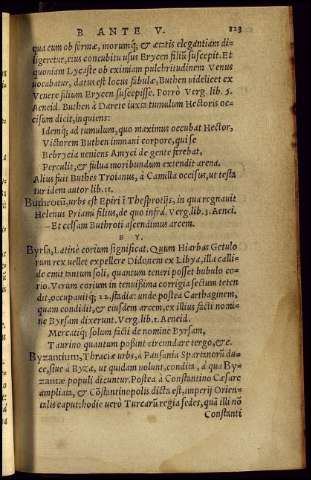 B ANTE V. 123
qua cum ob formæ, morumq́; & ætatis elegantiam di-
ligeretur, eius concubitu usus Erycen filiũ suscepit. Et
quoniam Lycaste ob eximiam pulchritudinem Venus
uocabatur, datus est locus fabulæ, Buthen videlicet ex
Venere filium Erycen suscepisse. Porrò Verg. lib. 5.
Aeneid. Buthen à Darete iuxta tumulum Hectoris oc-
cisum dicit, inquiens:
Idemq́; ad tumulum, quo maximus occubat Hector,
Victorem Buthen immani corpore, qui se
Bebrycia ueniens Amyci de gente ferebat,
Perculit, & fulua moribundum extendit arena.
Alius fuit Buthes Troianus, à Camilla occisus, ut testa
tur idem autor lib. 11.
Buthroeũ, urbs est Epiri ĩ Thesprotijs, in qua regnauit
Helenus Priami filius, de quo infrà. Verg. lib. 3. Aenei.
Et celsam Buthroti ascendimus arcem.
B Y.
Byrsa, Latinè corium significat. Quum Hiarbas Getulo
rum rex uellet expellere Didonem ex Libya, illa calli-
de emit tantum soli, quantum teneri posset bubulo co-
rio. Verum corium in tenuissima corrigia sectum teten
dit, occupauitq́; 22. stadia: unde postea Carthaginem,
quam condidit, & eiusdem arcem, ex illius facti nomi-
ne Byrsam dixerunt. Verg. lib. 1. Aeneid.
Mercatiq́; solum facti de nomine Byrsam,
Taurino quantum possint circundare tergo, &c.
Byzantium, Thraciæ urbs, à Pausania Spartanorũ du-
ce, siue à Byza, ut quidam uolunt, condita, à qua By-
zantæ populi dicuntur. Postea à Constantino Cæsare
ampliata, & Cõstantinopolis dicta est, imperij Orien-
talis caput: hodie uerò Turcarũ regia sedes, quã illi nõ
Constanti